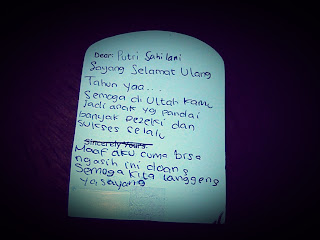 Dear: Putri Sahilani
Sayang Selamat Ulang
Tahun yaa...
Semoga di Ultah kamu
jadi anak yg pandai
banyak Rezeki dan
sukses selalu
Sincerely Yours
Maaf aku cuma bisa
ngasih ini doang
Semoga kita langgeng
ya sayang